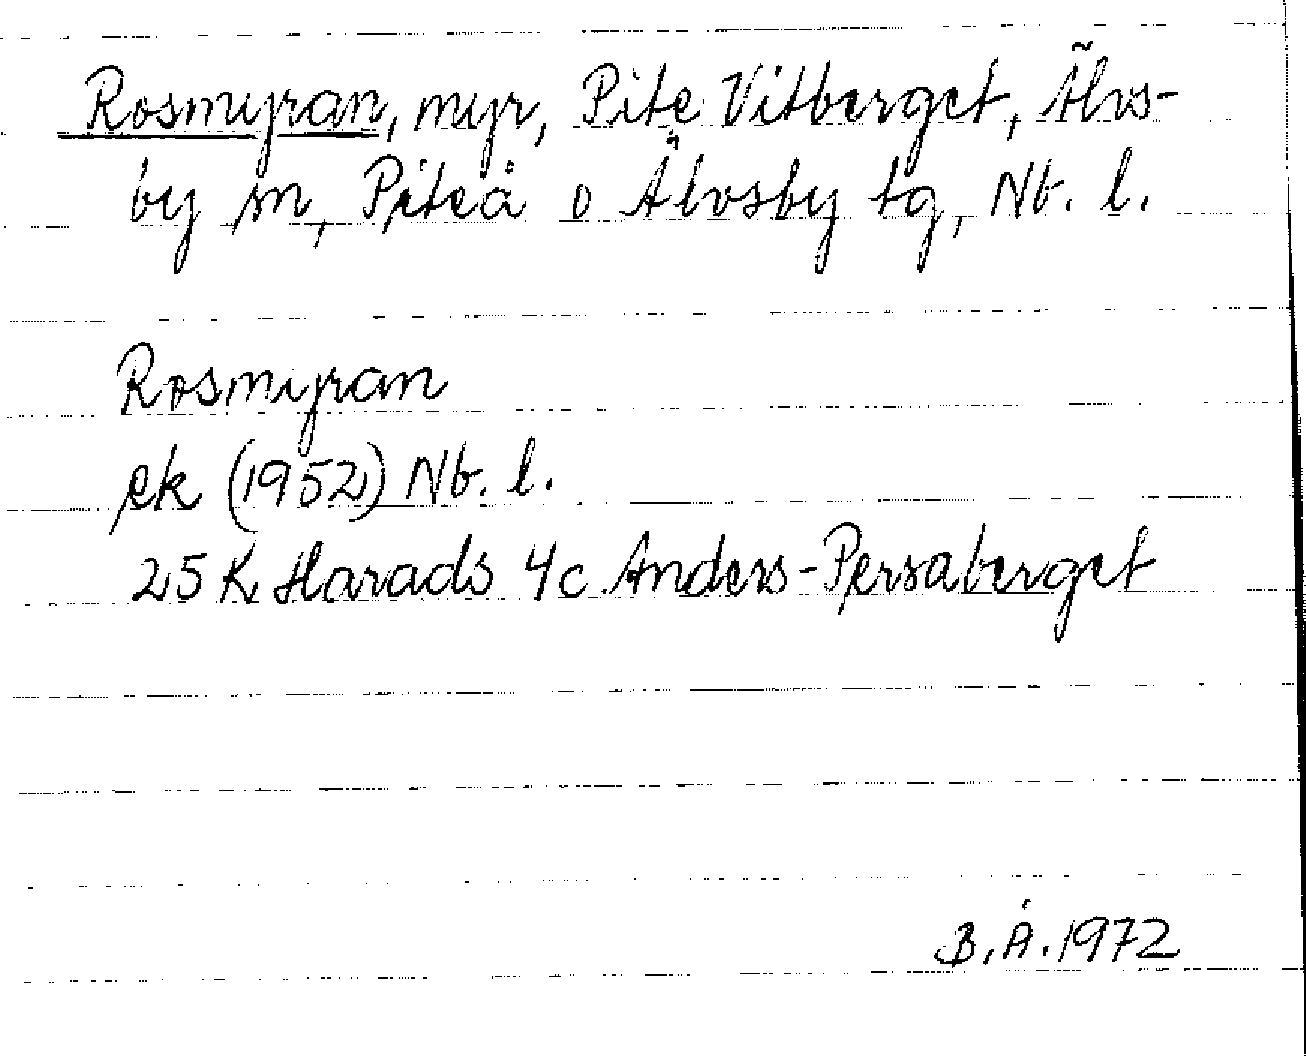 Rosmyran, myr, Pite Vitberget, Älvs-
by sn, Piteå o Älvsby tg, Nb. l.
Rosmyran
ek (1952) Nb. l.
25 K Harads 4c Anders-Persaberget
B.Å.1972